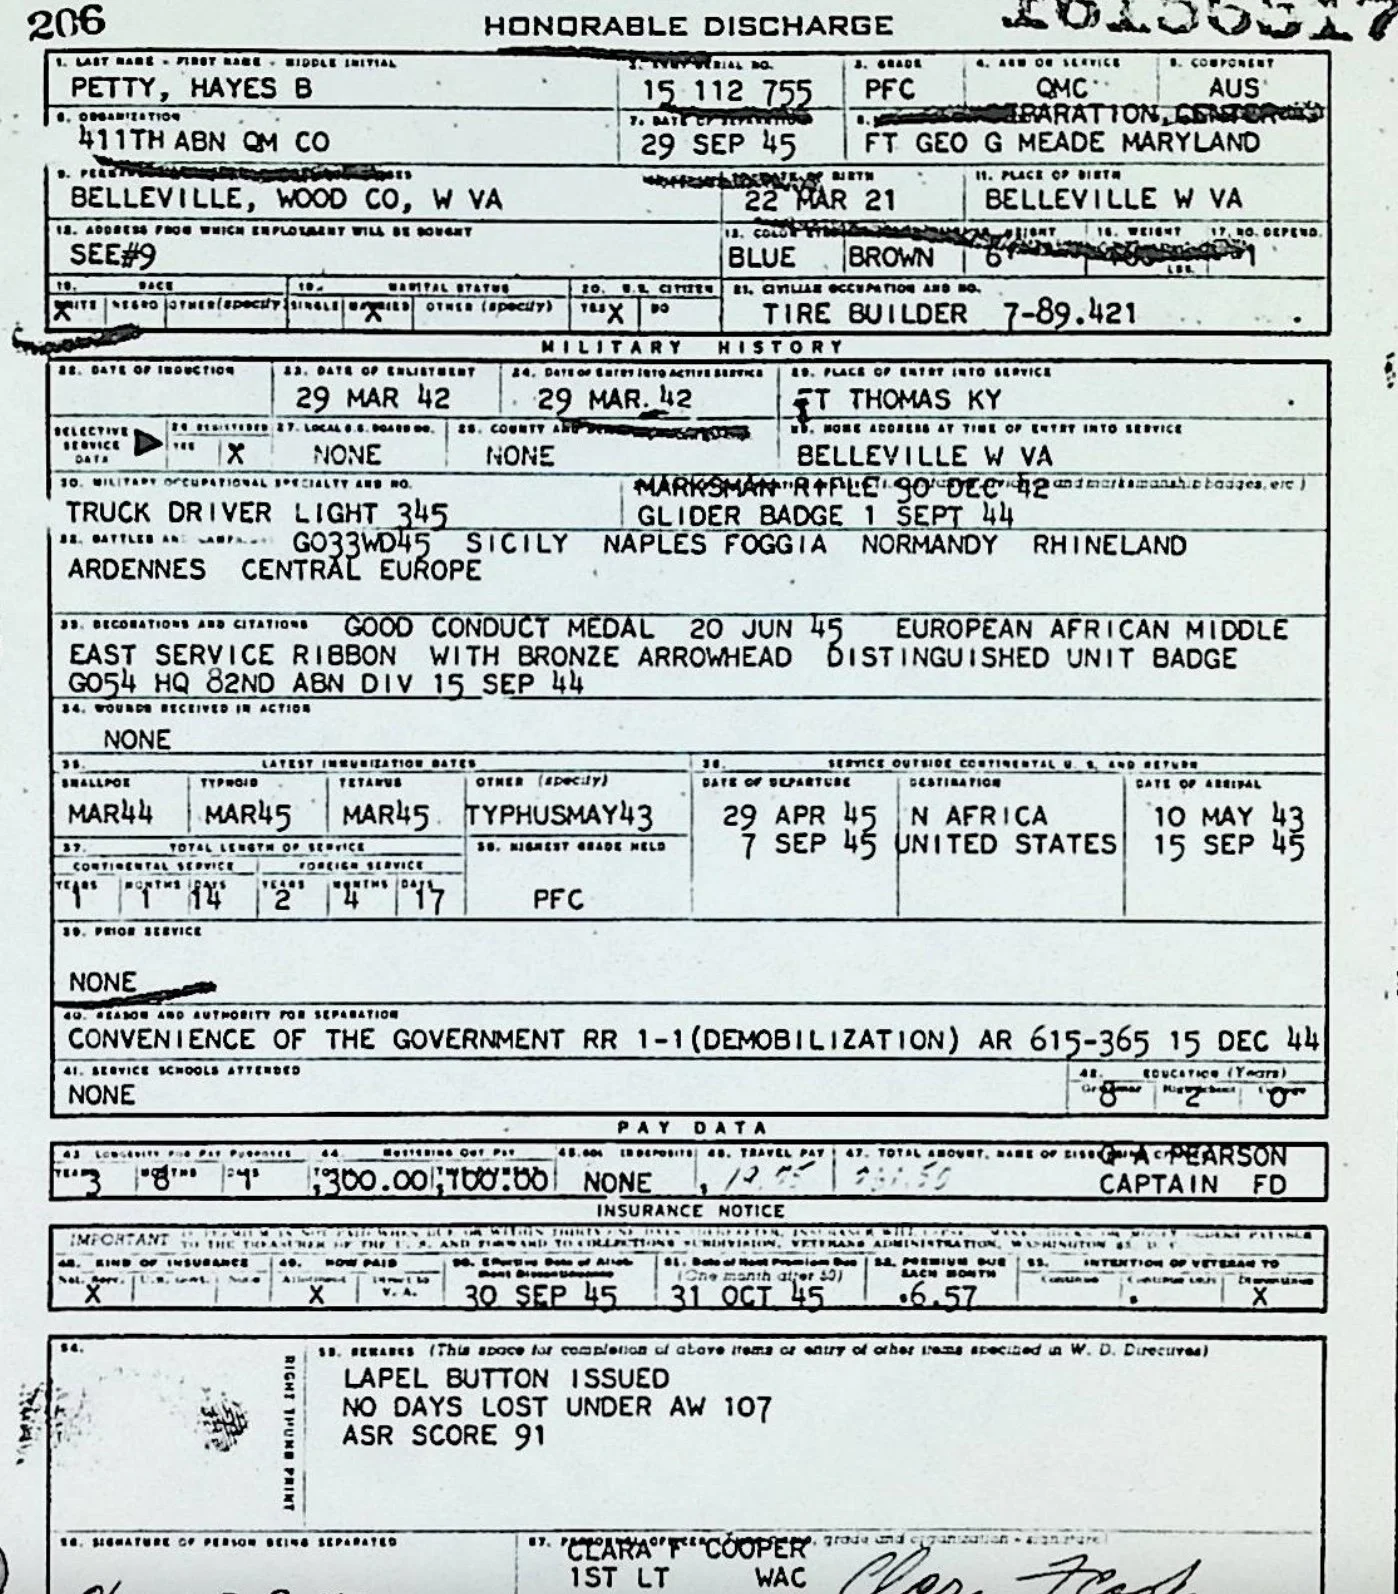 206
HONORABLE DISCHARGE
1. LAST NAME - FIRST NAME - MIDDLE INITIAL
SERIAL NO.
3. GRADE
4. ARM OR SERVICE
5. COMPONENT
PETTY, HAYES B
15 112 755
PFC
QMC
AUS
6. ORGANIZATION
7. DATE OF SEPARATION
8.
SEPARATION CENTER
411TH ABN QM CO
29 SEP 45
FT GEO G MEADE MARYLAND
9.
DATE OF BIRTH
11. PLACE OF BIRTH
BELLEVILLE, WOOD CO, W VA
22 MAR 21
BELLEVILLE W VA
12. ADDRESS FROM WHICH EMPLOYMENT WILL BE SOUGHT
13. COLOR EYES
HEIGHT
16. WEIGHT
17. NO. DEPEND.
SEE#9
BLUE
BROWN
6'
LBS.
1
18. RACE
19. MARITAL STATUS
20. U.S. CITIZEN
21. CIVILIAN OCCUPATION AND NO.
WHITE X NEGRO OTHER (specify) SINGLE MARRIED X OTHER (specify) YES X NO
TIRE BUILDER 7-89.421
MILITARY HISTORY
22. DATE OF INDUCTION
23. DATE OF ENLISTMENT
24. DATE OF ENTRY INTO ACTIVE SERVICE
25. PLACE OF ENTRY INTO SERVICE
29 MAR 42
29 MAR. 42
FT THOMAS KY
SELECTIVE SERVICE DATA
26. REGISTERED
YES X
27. LOCAL S.S. BOARD NO.
28. COUNTY AND
29. HOME ADDRESS AT TIME OF ENTRY INTO SERVICE
NONE
NONE
BELLEVILLE W VA
30. MILITARY OCCUPATIONAL SPECIALTY AND NO.
MARKSMAN RIFLE 90 DEC 42
and marksmanship badges, etc.)
TRUCK DRIVER LIGHT 345
GLIDER BADGE 1 SEPT 44
32. BATTLES AND CAMPAIGNS
GO33WD45 SICILY NAPLES FOGGIA NORMANDY RHINELAND
ARDENNES CENTRAL EUROPE
33. DECORATIONS AND CITATIONS
GOOD CONDUCT MEDAL 20 JUN 45 EUROPEAN AFRICAN MIDDLE
EAST SERVICE RIBBON WITH BRONZE ARROWHEAD DISTINGUISHED UNIT BADGE
GO54 HQ 82ND ABN DIV 15 SEP 44
34. WOUNDS RECEIVED IN ACTION
NONE
35. LATEST IMMUNIZATION DATES
36. SERVICE OUTSIDE CONTINENTAL U. S. AND RETURN
SMALLPOX
TYPHOID
TETANUS
OTHER (specify)
DATE OF DEPARTURE
DESTINATION
DATE OF ARRIVAL
MAR44
MAR45
MAR45
TYPHUSMAY43
29 APR 45
N AFRICA
10 MAY 43
7 SEP 45
UNITED STATES
15 SEP 45
37. TOTAL LENGTH OF SERVICE
38. HIGHEST GRADE HELD
CONTINENTAL SERVICE
FOREIGN SERVICE
YEARS MONTHS DAYS YEARS MONTHS DAYS
1 1 14 2 4 17
PFC
39. PRIOR SERVICE
NONE
40. REASON AND AUTHORITY FOR SEPARATION
CONVENIENCE OF THE GOVERNMENT RR 1-1(DEMOBILIZATION) AR 615-365 15 DEC 44
41. SERVICE SCHOOLS ATTENDED
42. EDUCATION (Years)
NONE
8 2 0
PAY DATA
43 LONGEVITY FOR PAY PURPOSES
44. MUSTERING OUT PAY
45. SOL DEPOSITS
46. TRAVEL PAY
47. TOTAL AMOUNT, NAME OF DISBURSING OFFICER
Q A PEARSON
YEARS 3 MONTHS 8 DAYS 1
300.00
100.00
NONE
CAPTAIN FD
INSURANCE NOTICE
IMPORTANT
TO THE TREASURER OF THE U. S. AND FORWARD TO COLLECTIONS SUBDIVISION, VETERANS ADMINISTRATION, WASHINGTON 25, D. C.
48. KIND OF INSURANCE
49. HOW PAID
50. Effective Date of Allotment Discontinuance
51. Date of Next Premium Due
(One month after 50)
52. PREMIUM DUE EACH MONTH
53. INTENTION OF VETERAN TO
X
X
V. A.
30 SEP 45
31 OCT 45
6.57
X
54.
RIGHT THUMB PRINT
55. REMARKS (This space for completion of above items or entry of other items specified in W. D. Directives)
LAPEL BUTTON ISSUED
NO DAYS LOST UNDER AW 107
ASR SCORE 91
56. SIGNATURE OF PERSON BEING SEPARATED
57. PERSONNEL OFFICER
grade and organization - signature)
CLARA F COOPER
1ST LT WAC